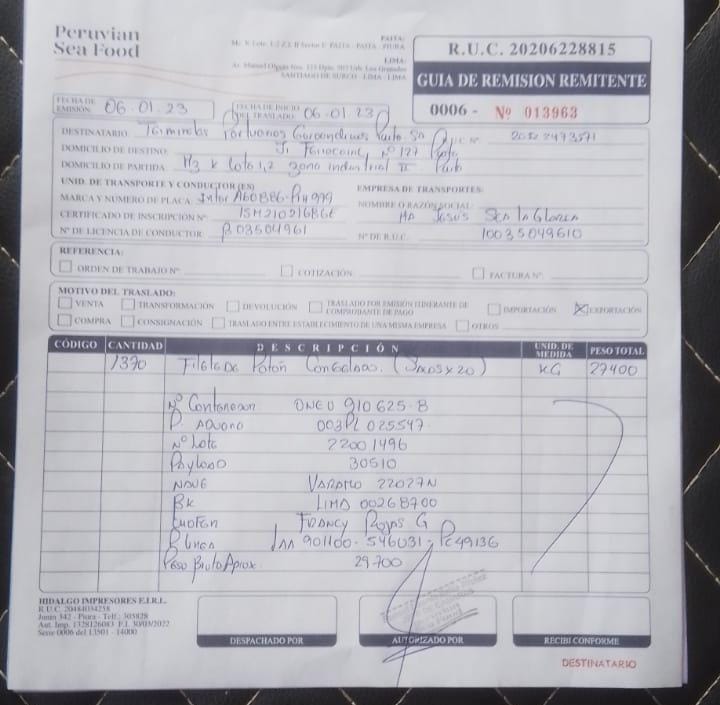 Peruvian
Sea Food
PAITA:
LIMA:
SANTIAGO DE SURCO - LIMA - LIMA
R.U.C. 20206228815
GUIA DE REMISION REMITENTE
0006 - Nº 013963
FECHA DE EMISIÓN 06.01.23
FECHA DE INICIO DEL TRASLADO 06.01.23
DESTINATARIO Terminales Portuarios Euroandinos Paita SA
DOMICILIO DE DESTINO: Jr Ferrocarril Nº 127 Paita
DOMICILIO DE PARTIDA: Mz K Lote 1,2 zona industrial II Paita
UNID. DE TRANSPORTE Y CONDUCTOR (ES)
EMPRESA DE TRANSPORTES:
MARCA Y NUMERO DE PLACA:
NOMBRE O RAZÓN SOCIAL:
Ma Jesus
CERTIFICADO DE INSCRIPCIÓN Nº:
Nº DE LICENCIA DE CONDUCTOR: B03504961
Nº DE R.U.C. 10035049610
REFERENCIA:
ORDEN DE TRABAJO Nº
COTIZACIÓN
FACTURA Nº:
MOTIVO DEL TRASLADO:
VENTA
TRANSFORMACIÓN
DEVOLUCIÓN
TRASLADO POR EMISIÓN ITINERANTE DE COMPROBANTE DE PAGO
IMPORTACIÓN
X EXPORTACIÓN
COMPRA
CONSIGNACIÓN
TRASLADO ENTRE ESTABLECIMIENTO DE UNA MISMA EMPRESA
OTROS
CÓDIGO CANTIDAD DESCRIPCIÓN UNID. DE MEDIDA PESO TOTAL
1370 Filete de Congelado (Sacos x 20) KG 27400
Nº Contenedor ONEU 910625-8
P. Aduana 003PL025547
Nº Lote 22001496
Payload 30510
Nave 22027N
Bk LIMA 00268700
Chofer Francy Rojas G
P. Linea
Peso Bruto Aprox. 29700
HIDALGO IMPRESORES E.I.R.L.
R.U.C. 20484034258
Junín 342 - Piura - Telf.: 305828
Aut. Imp. 1328126083 F.I. 30/03/2022
Serie 0006 del 13501 - 14000
DESPACHADO POR
AUTORIZADO POR
RECIBI CONFORME
DESTINATARIO